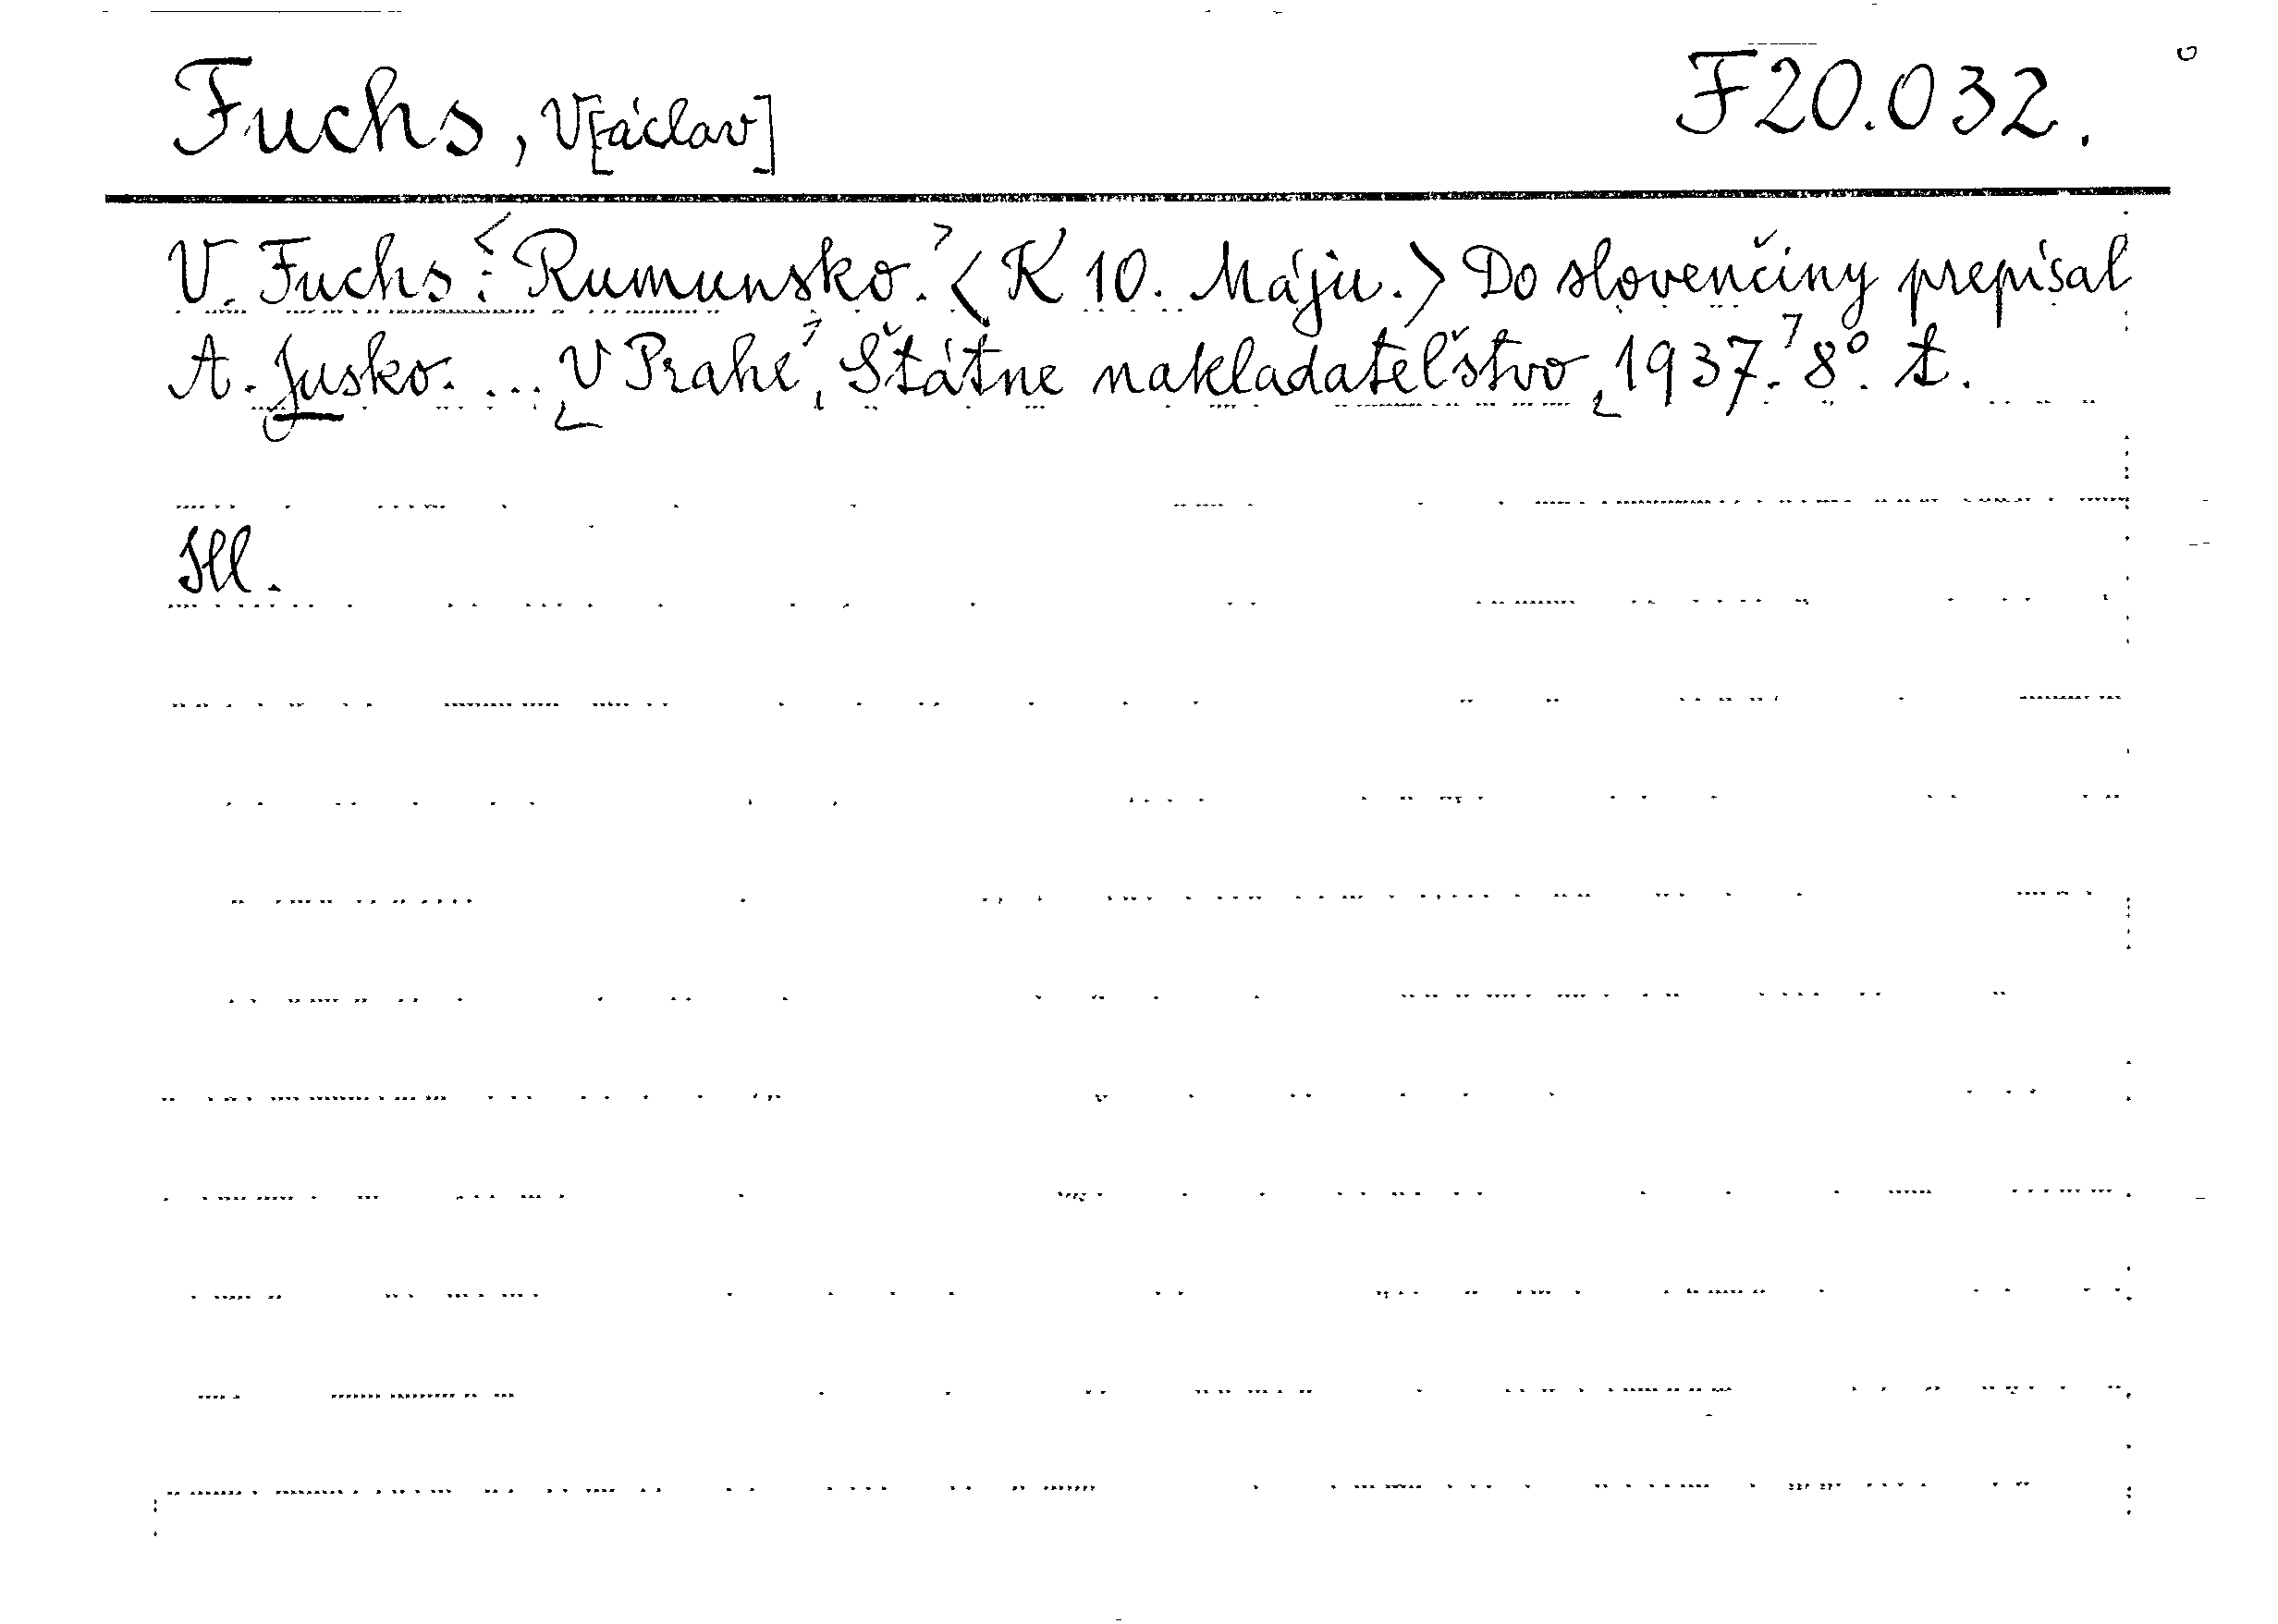 Fuchs, V[áclav] F20.032.
V. Fuchs: Rumunsko. <K 10. Máju.> Do slovenčiny prepísal
A. Jusko. ... V Prahe, Štátne nakladateľstvo, 1937. 8°. t.
Ill.